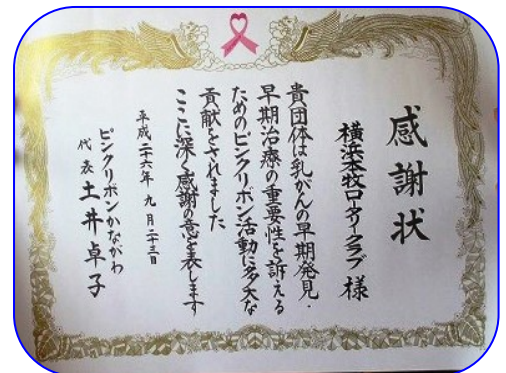 感謝状
横浜本牧ロータリークラブ 様
貴団体は乳がんの早期発見・
早期治療の重要性を訴える
ためのピンクリボン活動に多大な
貢献をされました
ここに深く感謝の意を表します
平成二十六年 九月二十三日
ピンクリボンかながわ
代表 土井卓子